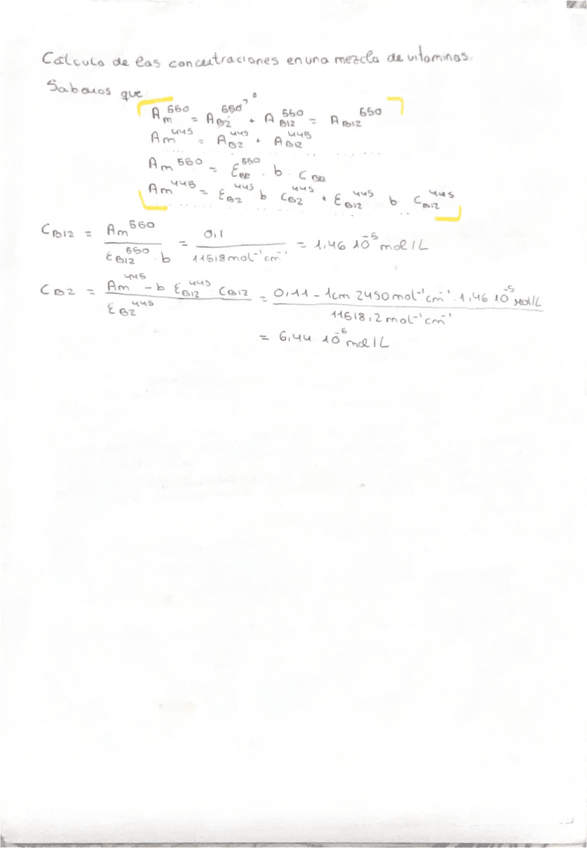 Cálculo de las concentraciones en una mezcla de vitaminas.
Sabemos que
Am^550 = A_B2^550 ↗0 + A_B12^550 = A_B12^550
Am^445 = A_B2^445 + A_B12^445
Am^550 = ε_B12^550 · b · C_B12
Am^445 = ε_B2^445 b C_B2^445 + ε_B12^445 b C_B12^445
C_B12 = Am^550 / (ε_B12^550 · b) = 0,1 / (11618 mol^-1 cm^-1) = 1,46 10^-5 mol/L
C_B2 = (Am^445 - b ε_B12^445 C_B12) / ε_B2^445 = (0,11 - 1cm 2450 mol^-1 cm^-1 · 1,46 10^-5 mol/L) / (11618,2 mol^-1 cm^-1)
= 6,44 10^-6 mol/L